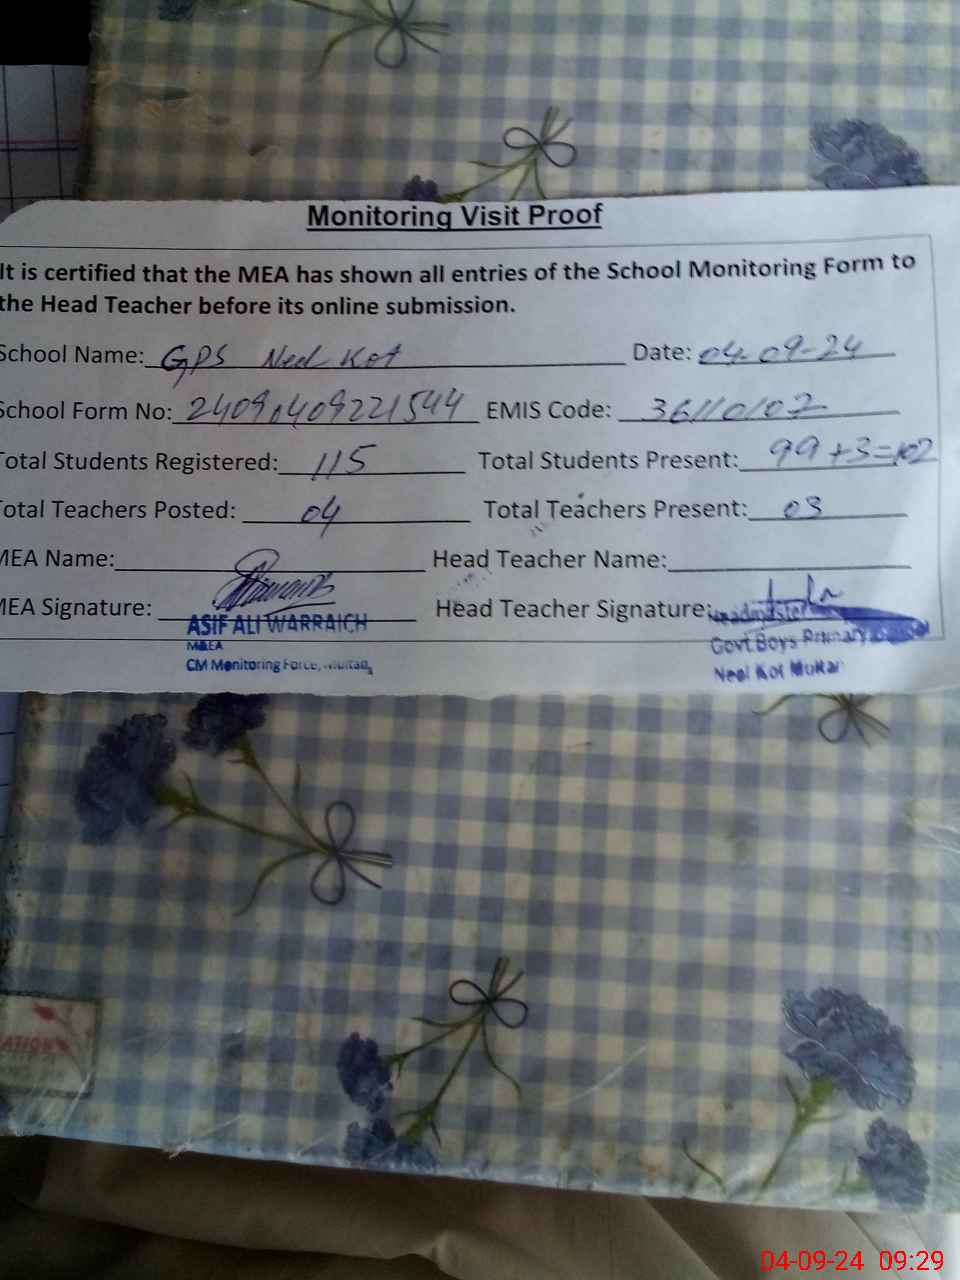 Monitoring Visit Proof
It is certified that the MEA has shown all entries of the School Monitoring Form to
the Head Teacher before its online submission.
School Name: GPS Neel Kot Date: 04-09-24
School Form No: 24090409221544 EMIS Code: 36110102
Total Students Registered: 115 Total Students Present: 99+3=102
Total Teachers Posted: 04 Total Teachers Present: 03
MEA Name: Head Teacher Name:
MEA Signature: Head Teacher Signature:
ASIF ALI WARRAICH
M&EA
CM Monitoring Force, Multan
Headmaster
Govt.Boys Primary School
Neel Kot Multan
ATION
04-09-24 09:29